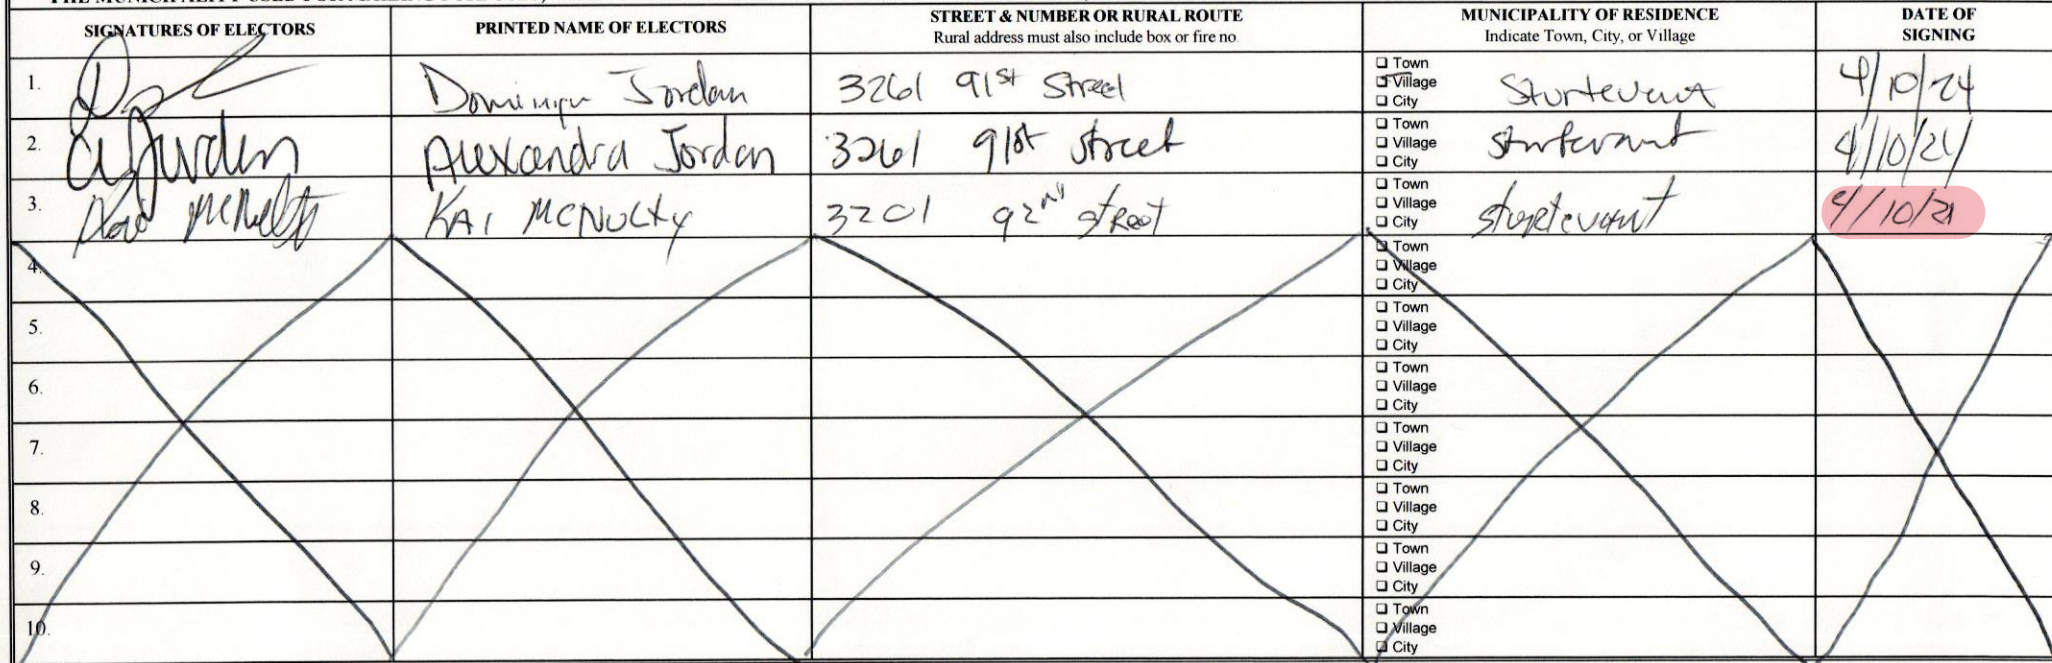 SIGNATURES OF ELECTORS PRINTED NAME OF ELECTORS STREET & NUMBER OR RURAL ROUTE Rural address must also include box or fire no. MUNICIPALITY OF RESIDENCE Indicate Town, City, or Village DATE OF SIGNING
1. Jordan 3261 91st Street Town Village City Sturtevant 4/10/24
2. Jordan Alexandra Jordan 3261 91st Street Town Village City Sturtevant 4/10/24
3. Kai McNulty KAI MCNULTY 3201 92nd Street Town Village City Sturtevant 4/10/
4. Town Village City
5. Town Village City
6. Town Village City
7. Town Village City
8. Town Village City
9. Town Village City
10. Town Village City